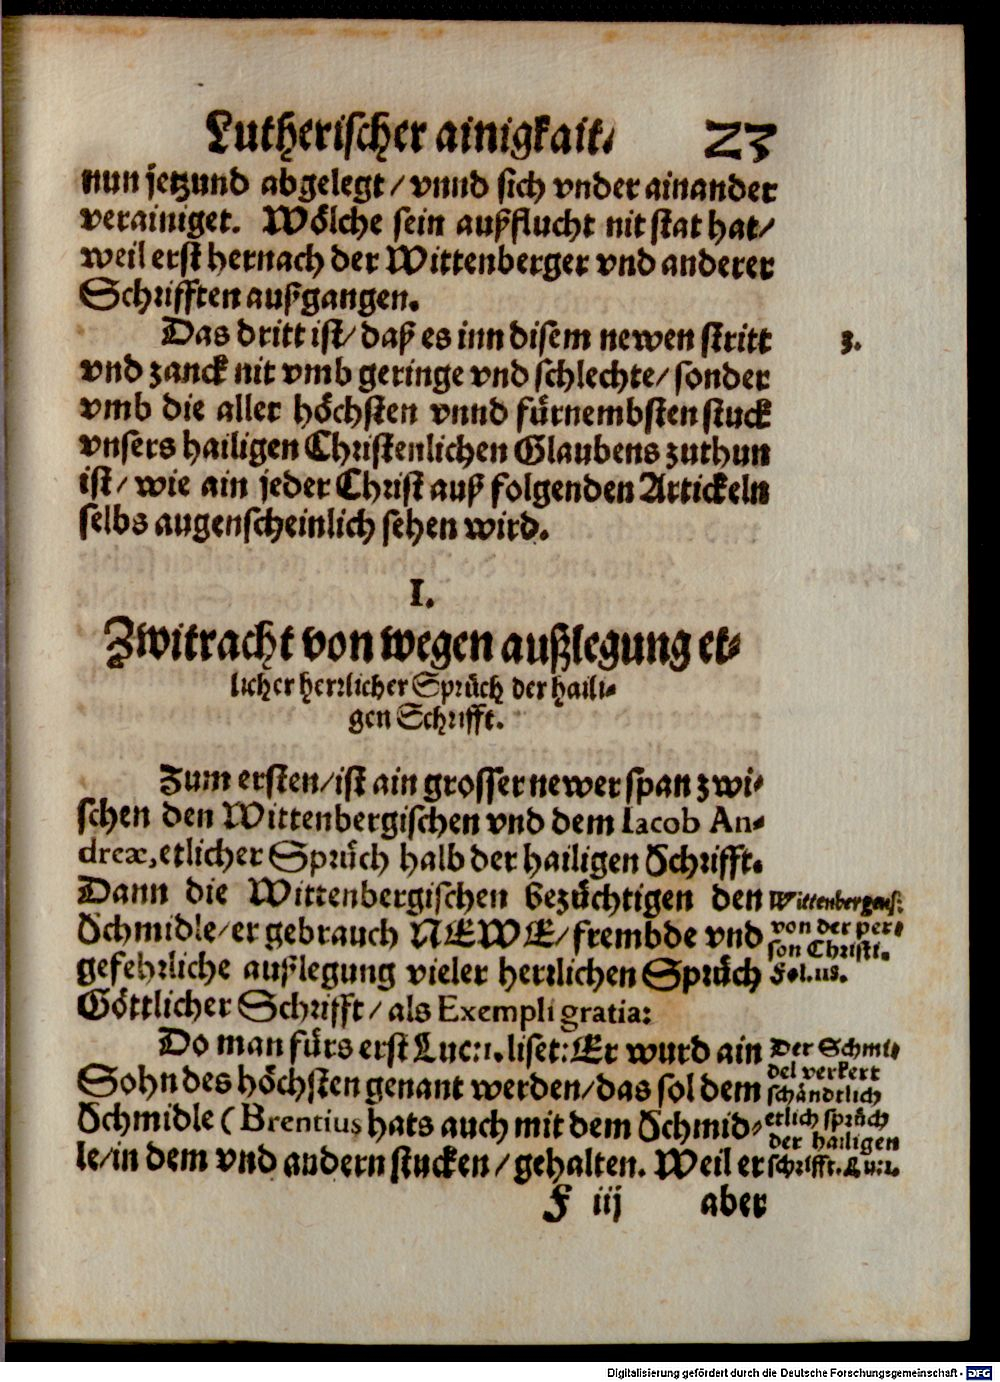 Lutherischer ainigkait. 23
nun jetzund abgelegt / vnnd sich vnder ainander
verainiget. Wölche sein außflucht nit stat hat /
weil erst hernach der Wittenberger vnd anderer
Schrifften außgangen.
Das dritt ist / daß es inn disem newen stritt
3.
vnd zanck nit vmb geringe vnd schlechte / sonder
vmb die aller höchsten vnnd fürnembsten stuck
vnsers hailigen Christenlichen Glaubens zuthun
ist / wie ain jeder Christ auß folgenden Artickeln
selbs augenscheinlich sehen wird.
I.
Zwitracht von wegen außlegung et-
licher herrlicher Sprüch der haili-
gen Schrifft.
Zum ersten / ist ain grosser newer span zwi-
schen den Wittenbergischen vnd dem Iacob An-
dreæ, etlicher Sprüch halb der hailigen Schrifft.
Dann die Wittenbergischen bezüchtigen den
Schmidle / er gebrauch NEWE / frembde vnd
gefehrliche außlegung vieler herrlichen Sprüch
Göttlicher Schrifft / als Exempli gratia:
Wittenbergens:
von der per-
son Christi.
Fol. 118.
Do man fürs erst Luc: 1. liset: Er wurd ain
Sohn des höchsten genant werden / das sol dem
Schmidle ( Brentius hats auch mit dem Schmid-
le / in dem vnd andern stucken / gehalten. Weil er
Der Schmi-
del verkert
schändtlich
etlich sprüch
der hailigen
schrifft. Lu: 1.
F iij aber
Digitalisierung gefördert durch die Deutsche Forschungsgemeinschaft - DFG